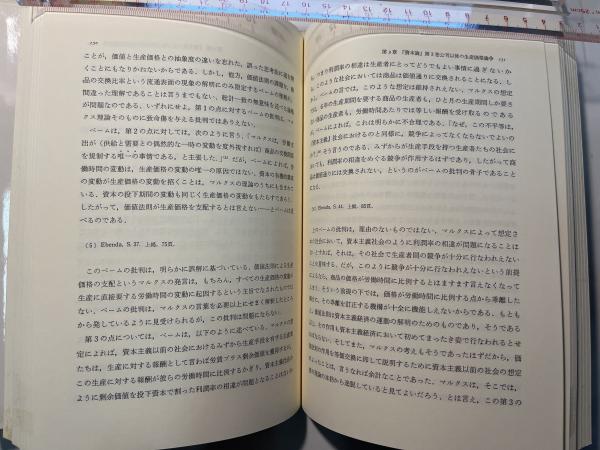 130
ことが，価値と生産価格との抽象度の違いを忘れた，誤った思考法に道を開
くことにもなりかねないからである。しかし，他方，価値法則の課題を，個
品の交換比率という流通表面の現象の解明にのみ限定するベームの理解が，
間違った理解であることは言うまでもない。総計一致の無意味を述べた箇所
が問題なのである。いずれにせよ，第1の点に対するベームの批判は，マル
クス理論そのものに致命傷を与える批判ではありえない。
ベームは，第2の点に対しては，次のように言う。「マルクスは，労働支
出が〈供給と需要との偶然的な一時の変動を度外視すれば〉商品の交換関係
を規制する唯一の事情である，と主張した。」⁽⁵⁾ だが，ベームによれば，労
働時間の変動は，生産価格の変動の唯一の原因ではない。資本の有機的構成
の変動が生産価格の変動を招くことは，マルクスの理論のうちにも含まれて
いる。資本の投下期間の変動も同じく生産価格の変動をもたらすであろう。
したがって，価値法則が生産価格を支配するとは言えない——とベームは述
べるのである。
(5) Ebenda, S. 37. 上掲，75頁。
このベームの批判は，明らかに誤解に基づいている。価値法則による生産
価格の支配というマルクスの発言は，もちろん，すべての生産価格の変動が
生産に直接要する労働時間の変動に起因するという主旨でなされたものでは
ない。ベームの批判は，マルクスの言葉を必要以上にせまく解釈したところ
から発しているように見受けられるが，この批判は問題にならない。
第3の点については，ベームは，以下のように述べている。マルクスの想
定によれば，資本主義以前の社会におけるみずから生産手段を所有する労働者
たちは，生産に対する報酬として言わば労賃プラス剰余価値を獲得する。
この生産に対する報酬が彼らの労働時間に比例するかぎり，資本主義社会の
ように剰余価値を投下資本で割った利潤率の相違が問題となることはない
第3章 『資本論』第3巻公刊以後の生産価格論争 131
つまり利潤率の相違は生産者にとってどうでもよい事情に過ぎないか
ら，このような社会においては商品は価値通りに交換されることになる。し
かし，ベームの言では，このような想定は維持されえない。マルクスの想定
では，6年の生産期間を要する商品の生産者も，ひと月の生産期間しか要さ
ない商品の生産者も，労働時間あたりでは等しい報酬を得ることになるが，
ベームによれば，これは明らかに不合理である。「なぜ，この不平等は，
〈資本主義〉社会におけるのと同様に，競争によってなくならないでよいの
か」⁽⁷⁾ そう言うのである。みずからが生産手段を持つ生産者たちのこの社会に
おいても，利潤率の相違をめぐる競争が作用するはずであり，したがって商
品が価値通りには交換されない，というのがベームの批判の骨子であること
になる。
(7) Ebenda, S. 44. 上掲，88頁。
上のベームの批判は，理由のないものではない。マルクスによって想定さ
れた社会において，資本主義社会のように利潤率の相違が問題になることは
ないとすれば，それは，その社会で生産者間の競争が十分に行われえない
ことを意味する。だが，このように競争が十分に行われえないという前提
によるなら，商品の価格が労働時間に比例するとはますます言えなくなって
しまう。そういう状態の下では，価格が労働時間に比例する点から乖離した
ときに，その乖離を訂正する機構が十全に機能しえないからである。もともと
価値法則は資本主義経済の運動の解明のためのものであり，そうである
以上，その作用も資本主義経済において初めてまったき姿で行われるとせざ
るをえない。そして，マルクスの考えもそうであったはずだから，価
値法則の作用を価値交換に拘して説明するために資本主義以前の社会の想定
を置くことは，言うなれば余計なことであった。マルクスは，そこでは，
自己の理論の本筋から逸脱していると見てよいだろう。とは言え，この第3の